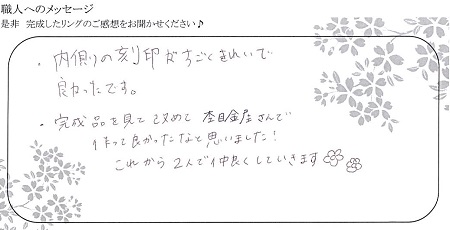 職人へのメッセージ
是非 完成したリングのご感想をお聞かせください♪
・内側の刻印がすごくきれいで
良かったです。
・完成品を見て改めて杢目金屋さんで
作って良かったなと思いました!
これから2人で仲良くしていきます